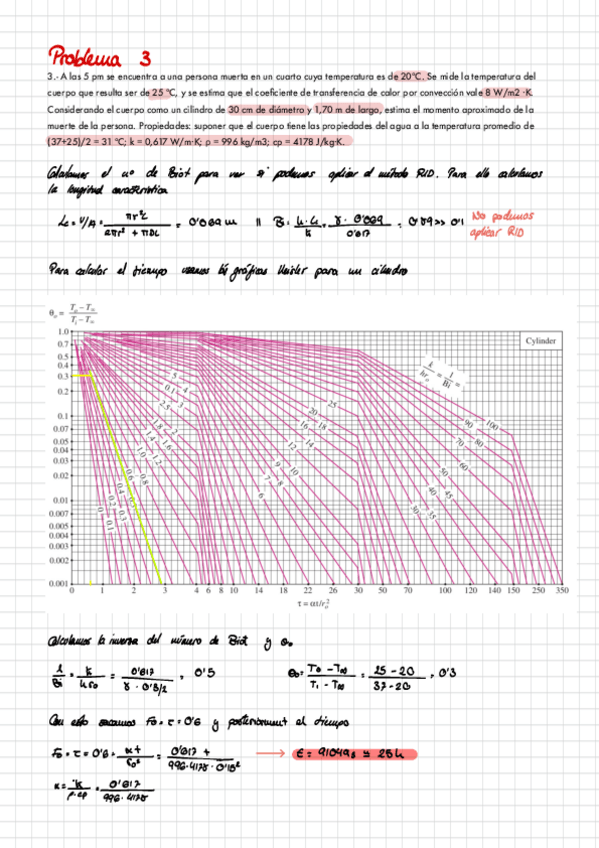 Problema 3
3.- A las 5 pm se encuentra a una persona muerta en un cuarto cuya temperatura es de 20°C. Se mide la temperatura del
cuerpo que resulta ser de 25 °C, y se estima que el coeficiente de transferencia de calor por convección vale 8 W/m2 ·K.
Considerando el cuerpo como un cilindro de 30 cm de diámetro y 1,70 m de largo, estima el momento aproximado de la
muerte de la persona. Propiedades: suponer que el cuerpo tiene las propiedades del agua a la temperatura promedio de
(37+25)/2 = 31 °C; k = 0,617 W/m·K; ρ = 996 kg/m3; cp = 4178 J/kg·K.
Calculamos el nº de Biot para ver si podemos aplicar el método RID. Para ello calculamos
la longitud característica
Lc = V/A = πr²L / 2πr² + πDL = 0'069 m || Bi = h·Lc / k = 8·0'069 / 0'617 = 0'89 >> 0'1 No podemos
aplicar RID
Para calcular el tiempo usamos gráficas Heisler para un cilindro
θo = To − T∞ / Ti − T∞
Cylinder
k / hro = 1 / Bi =
1.0
0.7
0.5
0.4
0.3
0.2
0.1
0.07
0.05
0.04
0.03
0.02
0.01
0.007
0.005
0.004
0.003
0.002
0.001
0 1 2 3 4 6 8 10 14 18 22 26 30 50 70 100 120 140 150 250 350
τ = αt/ro²
Calculamos la inversa del número de Biot y θo
1/Bi = k / h ro = 0'617 / 8·0'3/2 = 0'5 θo = To − T∞ / Ti − T∞ = 25 − 20 / 37 − 20 = 0'3
Con esto sacamos Fo = τ = 0'6 y posteriormente el tiempo
Fo = τ = 0'6 = αt / ro² = 0'617 t / 996·4178·0'15² → t = 91049 s ≅ 25h
α = k / ρ·cp = 0'617 / 996·4178